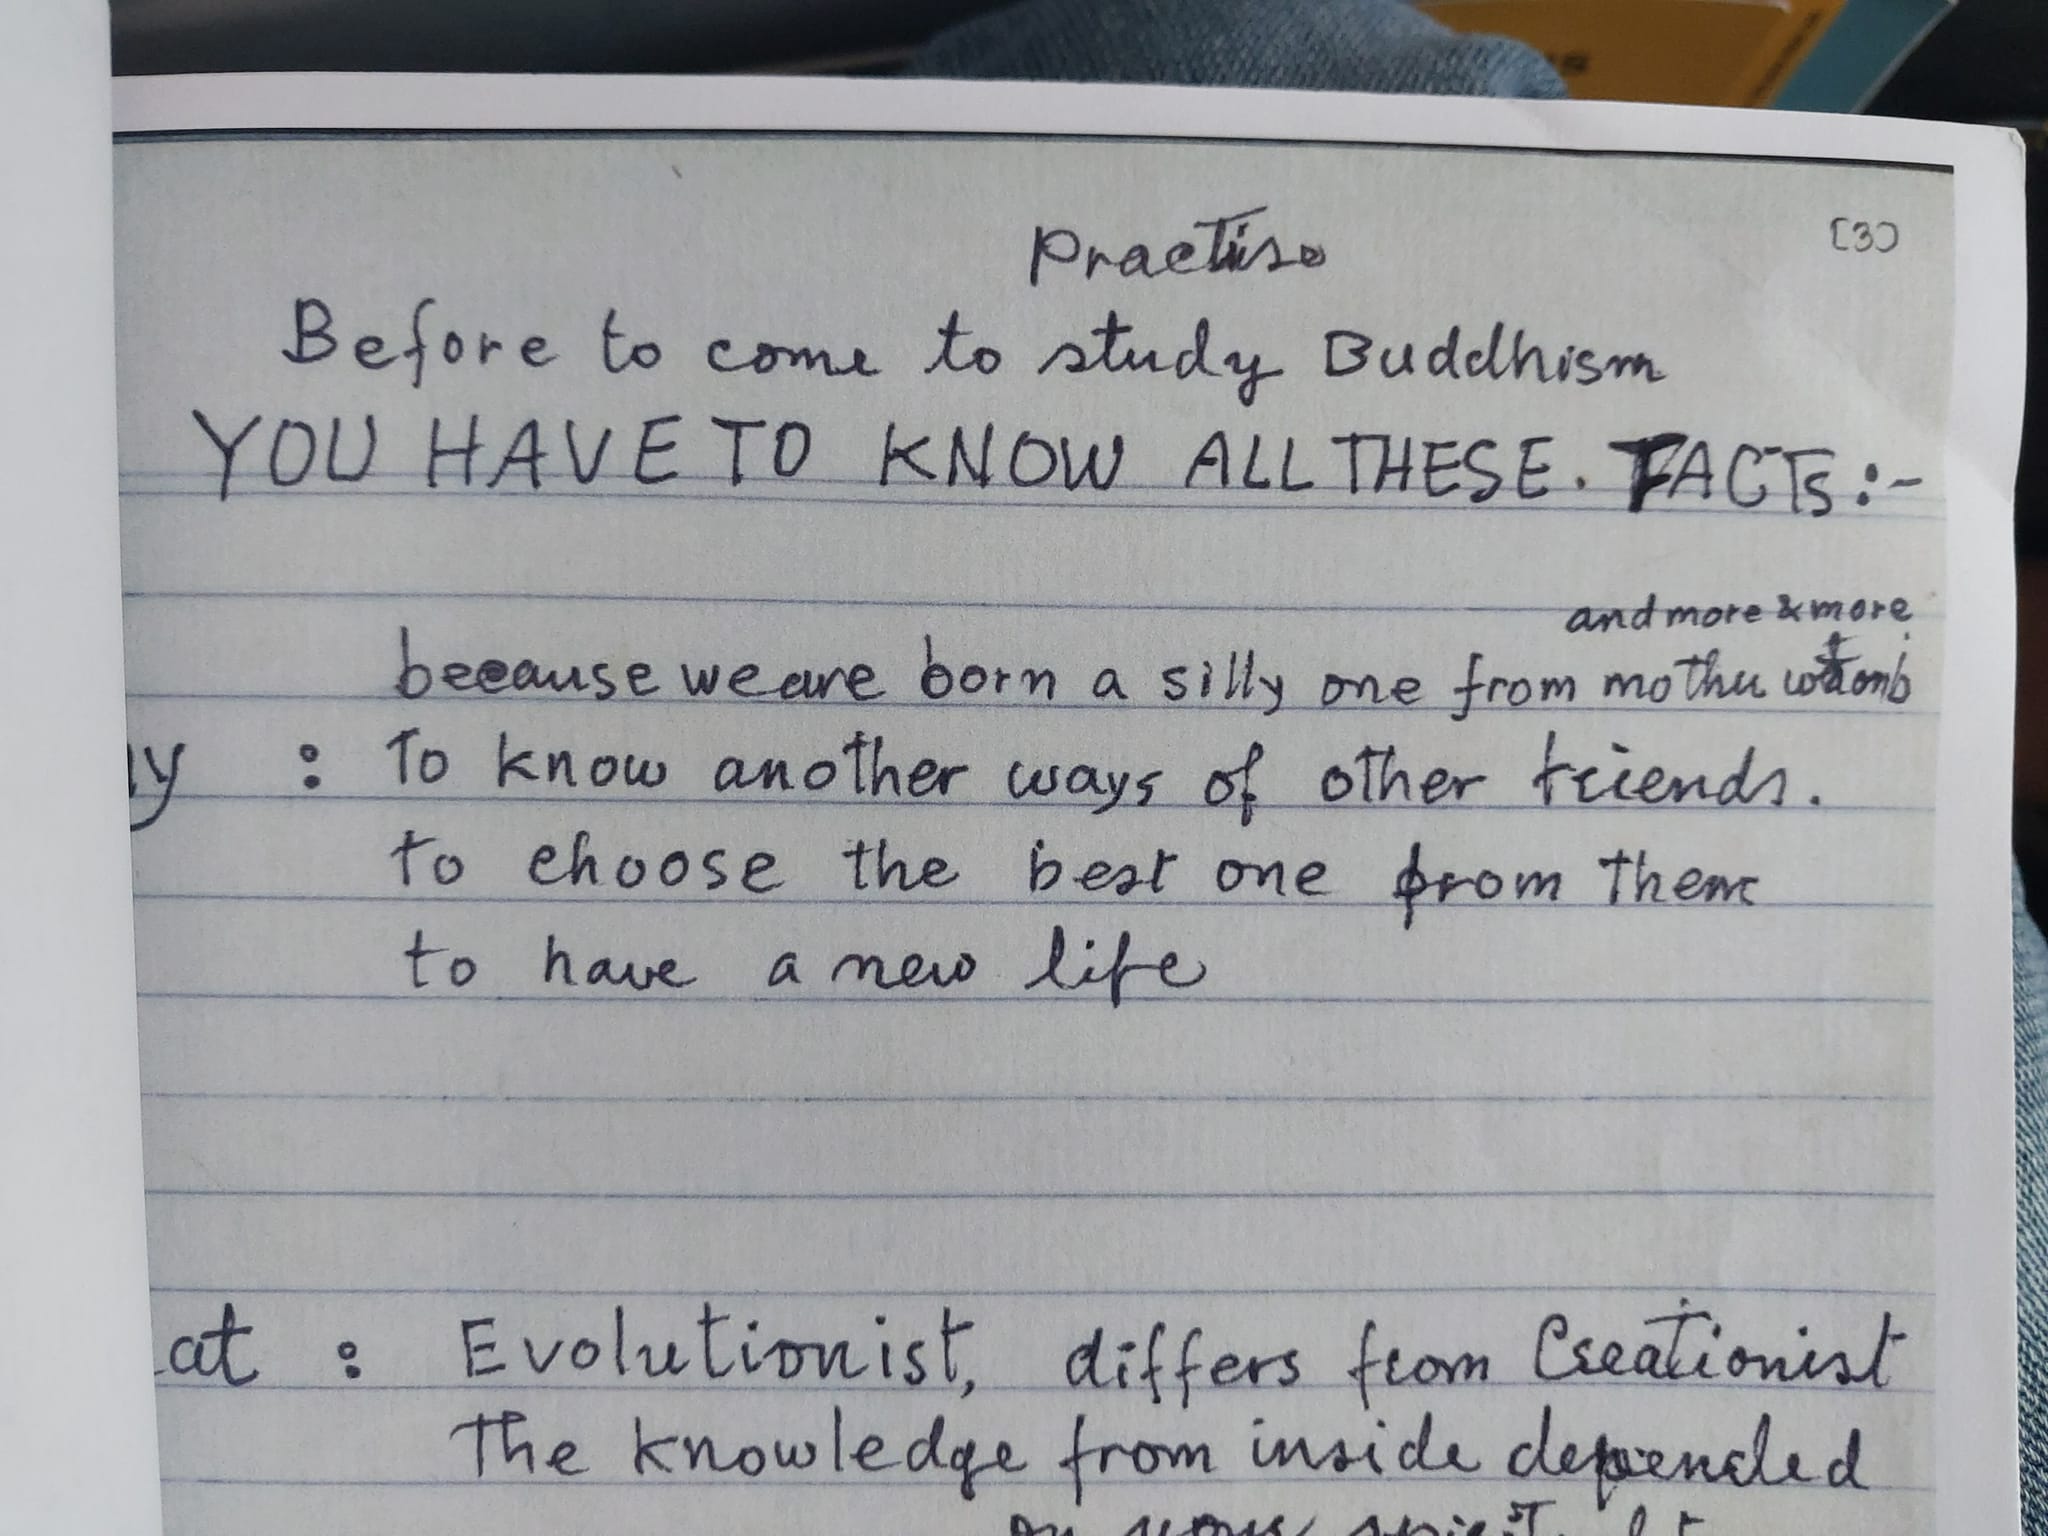 Practise
[3]
Before to come to study Buddhism
YOU HAVE TO KNOW ALL THESE. FACTS :-
and more & more
because we are born a silly one from mother womb
y : To know another ways of other friends.
to choose the best one from them
to have a new life
at : Evolutionist, differs from Creationist
The knowledge from inside depended
on your spirit